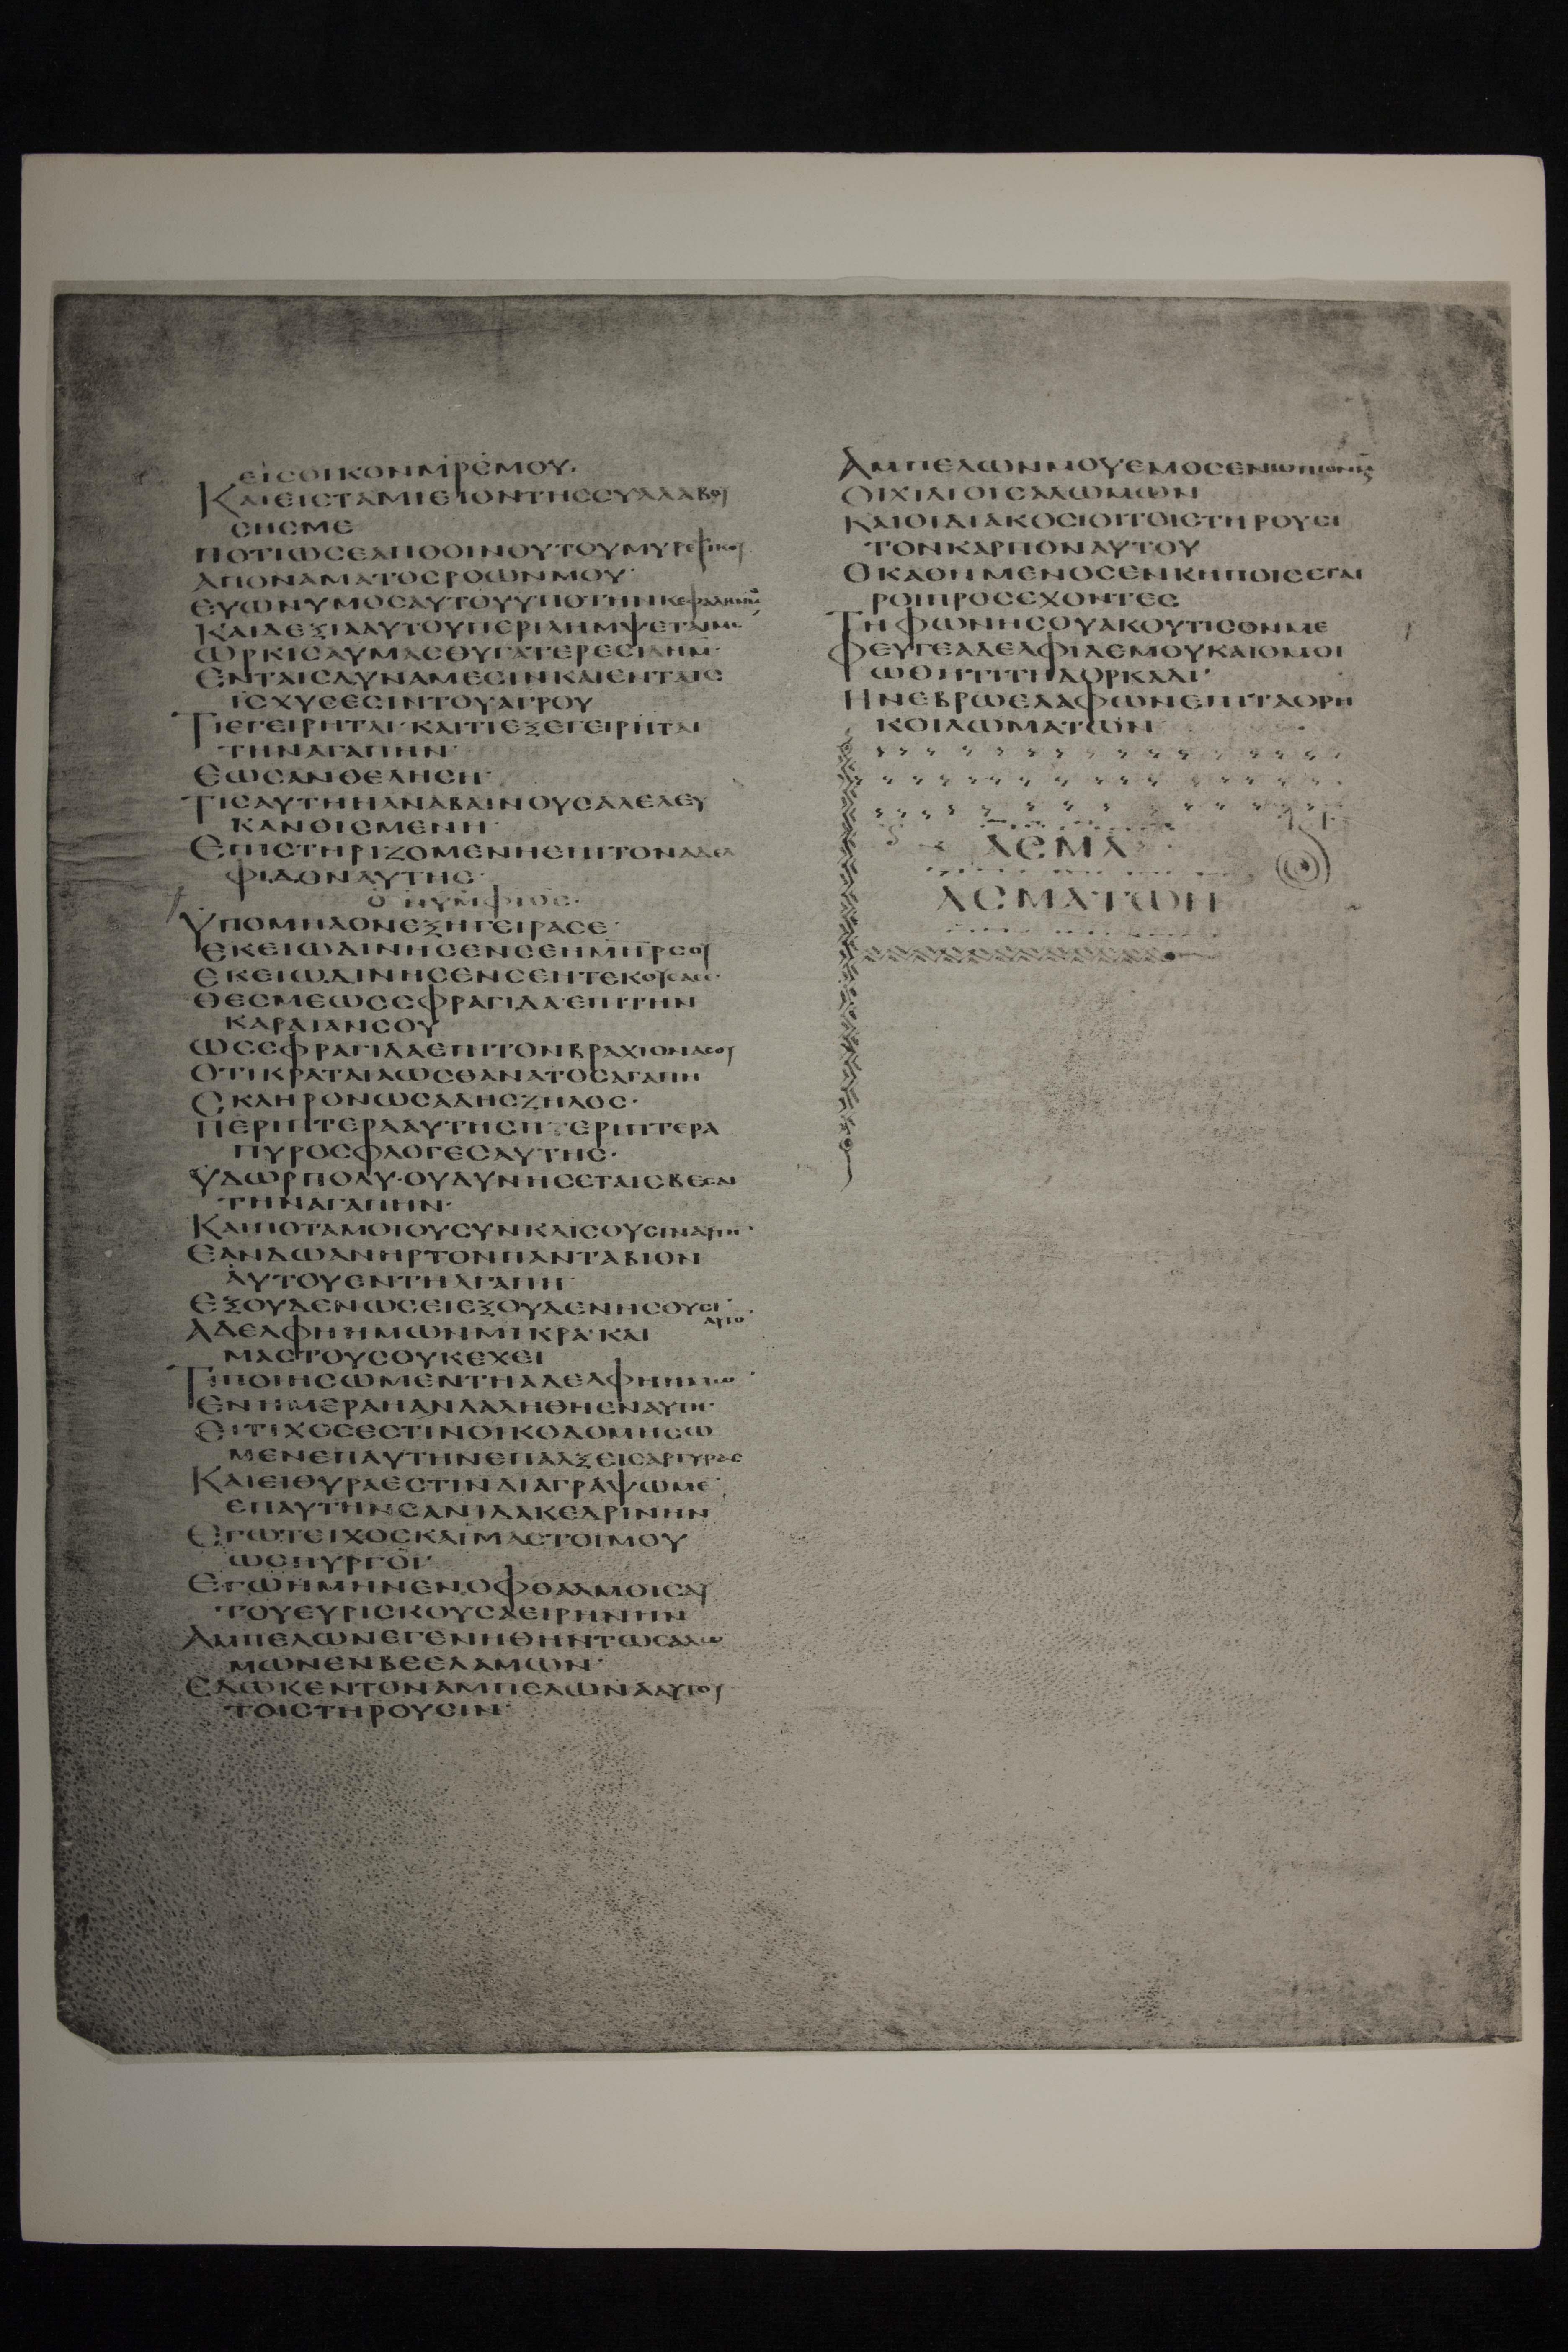 ΕΙϹΟΙΚΟΝΜΡ̅ϹΜΟΥ·
ΚΑΙΕΙϹΤΑΜΙΕΙΟΝΤΗϹϹΥΛΛΑΒΟΥ
ϹΗϹΜΕ
ΠΟΤΙΩϹΕΑΠΟΟΙΝΟΥΤΟΥΜΥΡΕΨΙΚΟΥ
ΑΠΟΝΑΜΑΤΟϹΡΟΩΝΜΟΥ·
ΕΥΩΝΥΜΟϹΑΥΤΟΥΥΠΟΤΗΝΚΕΦΑΛΗΝΜΟΥ
ΚΑΙΔΕΞΙΑΑΥΤΟΥΠΕΡΙΛΗΜΨΕΤΑΙΜΕ
ΩΡΚΙϹΑΥΜΑϹΘΥΓΑΤΕΡΕϹΙΛΗΜ·
ΕΝΤΑΙϹΔΥΝΑΜΕϹΙΝΚΑΙΕΝΤΑΙϹ
ΙϹΧΥϹΕϹΙΝΤΟΥΑΓΡΟΥ
ΤΙΕΓΕΙΡΗΤΑΙ·ΚΑΙΤΙΕΞΕΓΕΙΡΗΤΑΙ
ΤΗΝΑΓΑΠΗΝ·
ΕΩϹΑΝΘΕΛΗϹΗ·
ΤΙϹΑΥΤΗΗΑΝΑΒΑΙΝΟΥϹΑΛΕΛΕΥ
ΚΑΝΘΙϹΜΕΝΗ·
ΕΠΙϹΤΗΡΙΖΟΜΕΝΗΕΠΙΤΟΝΑΔΕΛ
ΦΙΔΟΝΑΥΤΗϹ·
Ο ΝΥΜΦΙΟϹ·
ΥΠΟΜΗΛΟΝΕΞΗΓΕΙΡΑϹΕ·
ΕΚΕΙΩΔΙΝΗϹΕΝϹΕΗΜΗΡϹΟΥ
ΕΚΕΙΩΔΙΝΗϹΕΝϹΕΗΤΕΚΟΥϹΑϹΕ·
ΘΕϹΜΕΩϹϹΦΡΑΓΙΔΑ·ΕΠΙΤΗΝ
ΚΑΡΔΙΑΝϹΟΥ
ΩϹϹΦΡΑΓΙΔΑΕΠΙΤΟΝΒΡΑΧΙΟΝΑϹΟΥ
ΟΤΙΚΡΑΤΑΙΑΩϹΘΑΝΑΤΟϹΑΓΑΠΗ
ϹΚΛΗΡΟΝΩϹΑΔΗϹΖΗΛΟϹ·
ΠΕΡΙΠΤΕΡΑΑΥΤΗϹΠΕΡΙΠΤΕΡΑ
ΠΥΡΟϹΦΛΟΓΕϹΑΥΤΗϹ·
ΥΔΩΡΠΟΛΥ·ΟΥΔΥΝΗϹΕΤΑΙϹΒΕϹΑΙ
ΤΗΝΑΓΑΠΗΝ·
ΚΑΙΠΟΤΑΜΟΙΟΥϹΥΝΚΛΙϹΟΥϹΙΝΑΥΤΗ·
ΕΑΝΔΩΑΝΗΡΤΟΝΠΑΝΤΑΒΙΟΝ
ΑΥΤΟΥΕΝΤΗΑΓΑΠΗ·
ΕΞΟΥΔΕΝΩϹΕΙΕΞΟΥΔΕΝΗϹΟΥϹΙ
ΑΥΤΟ·
ΑΔΕΛΦΗΗΜΩΝΜΙΚΡΑ·ΚΑΙ
ΜΑϹΤΟΥϹΟΥΚΕΧΕΙ
ΤΙΠΟΙΗϹΩΜΕΝΤΗΑΔΕΛΦΗΗΜΩ·
ΕΝΗΜΕΡΑΗΑΝΛΑΛΗΘΗΕΝΑΥΤΗ·
ΕΙΤΙΧΟϹΕϹΤΙΝΟΙΚΟΔΟΜΗϹΩ
ΜΕΝΕΠΑΥΤΗΝΕΠΑΛΞΕΙϹΑΡΓΥΡΑϹ
ΚΑΙΕΙΘΥΡΑΕϹΤΙΝΔΙΑΓΡΑΨΩΜΕ
ΕΠΑΥΤΗΝϹΑΝΙΔΑΚΕΔΡΙΝΗΝ
ΕΓΩΤΕΙΧΟϹΚΑΙΜΑϹΤΟΙΜΟΥ
ΩϹΠΥΡΓΟΙ·
ΕΓΩΗΜΗΝΕΝΟΦΘΑΛΜΟΙϹΑΥ
ΤΟΥΕΥΡΙϹΚΟΥϹΑΕΙΡΗΝΗΝ
ΑΜΠΕΛΩΝΕΓΕΝΗΘΗΝΤΩϹΑΛΩ
ΜΩΝΕΝΒΕΕΛΑΜΩΝ·
ΕΔΩΚΕΝΤΟΝΑΜΠΕΛΩΝΑΑΥΤΟΥ
ΤΟΙϹΤΗΡΟΥϹΙΝ·
ΑΜΠΕΛΩΝΜΟΥΕΜΟϹΕΝΩΠΙΟΝΜΟΥ
ΟΙΧΙΛΙΟΙϹΑΛΩΜΩΝ
ΚΑΙΟΙΔΙΑΚΟϹΙΟΙΤΟΙϹΤΗΡΟΥϹΙ
ΤΟΝΚΑΡΠΟΝΑΥΤΟΥ
ΟΚΑΘΗΜΕΝΟϹΕΝΚΗΠΟΙϹΕΤΑΙ
ΡΟΙΠΡΟϹΕΧΟΝΤΕϹ
ΤΗΦΩΝΗϹΟΥΑΚΟΥΤΙϹΟΝΜΕ
ΦΕΥΓΕΑΔΕΛΦΙΔΕΜΟΥΚΑΙΟΜΟΙ
ΩΘΗΤΙΤΗΔΟΡΚΑΔΙ·
ΗΝΕΒΡΩΕΛΑΦΩΝΕΠΙΤΑΟΡΗ
ΚΟΙΛΩΜΑΤΩΝ
ΑϹΜΑ
ΑϹΜΑΤΩΝ